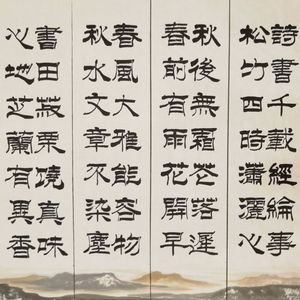 詩書千載經綸事
松竹四時瀟灑心
秋後無霜花落遲
春前有雨花開早
春風大雅能容物
秋水文章不染塵
書田菽粟饒真味
心地芝蘭有異香